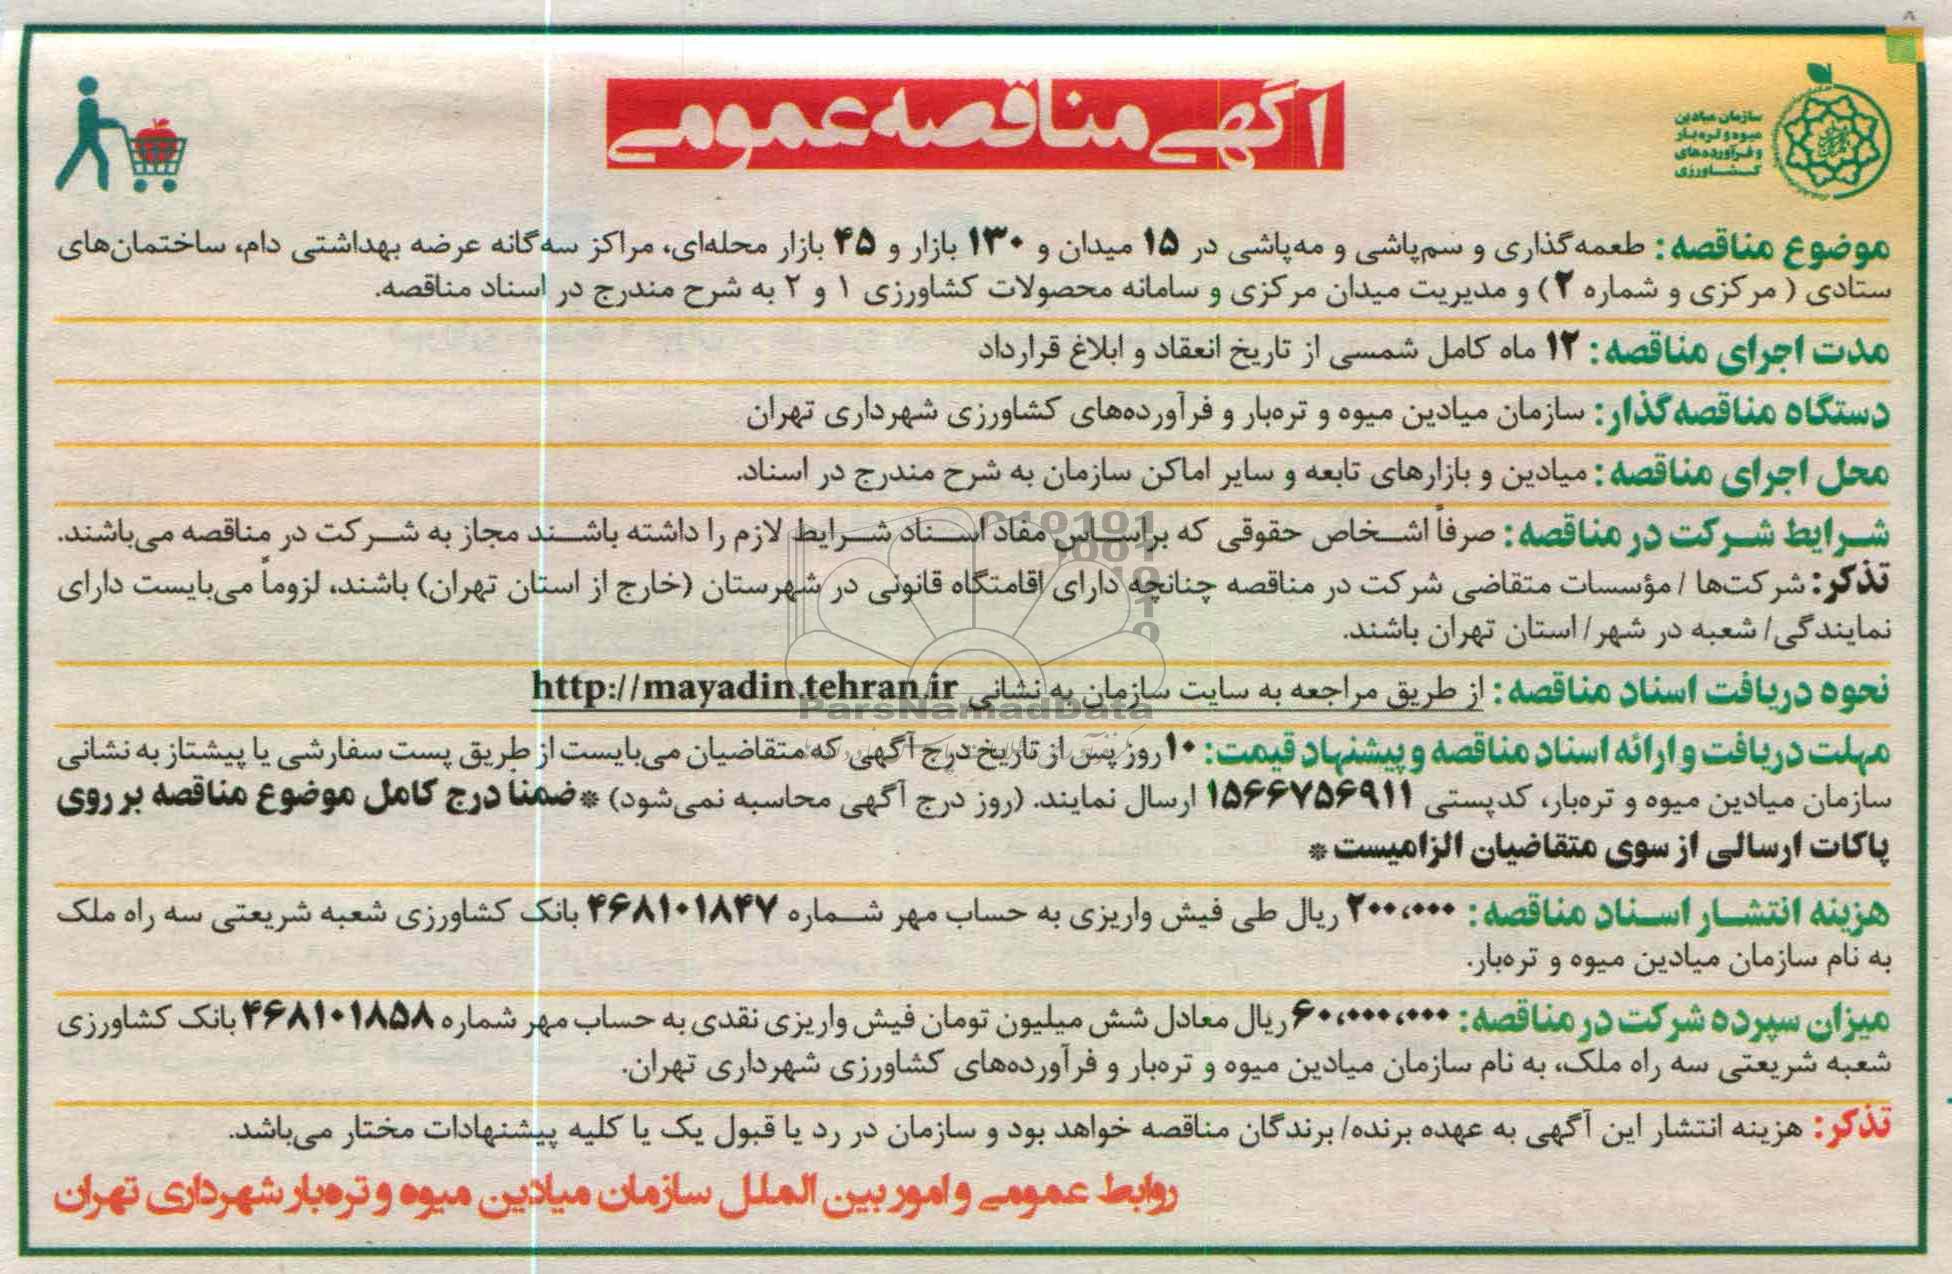 آگهی مناقصه عمومی
سازمان میادین
میوه و تره‌بار
و فرآورده‌های
کشاورزی
موضوع مناقصه: طعمه‌گذاری و سم‌پاشی و مه‌پاشی در ۱۵ میدان و ۱۳۰ بازار و ۴۵ بازار محله‌ای، مراکز سه‌گانه عرضه بهداشتی دام، ساختمان‌های
ستادی ( مرکزی و شماره ۲) و مدیریت میدان مرکزی و سامانه محصولات کشاورزی ۱ و ۲ به شرح مندرج در اسناد مناقصه.
مدت اجرای مناقصه: ۱۲ ماه کامل شمسی از تاریخ انعقاد و ابلاغ قرارداد
دستگاه مناقصه‌گذار: سازمان میادین میوه و تره‌بار و فرآورده‌های کشاورزی شهرداری تهران
محل اجرای مناقصه: میادین و بازارهای تابعه و سایر اماکن سازمان به شرح مندرج در اسناد.
شرایط شرکت در مناقصه: صرفاً اشخاص حقوقی که براساس مفاد اسناد شرایط لازم را داشته باشند مجاز به شرکت در مناقصه می‌باشند.
تذکر: شرکت‌ها / مؤسسات متقاضی شرکت در مناقصه چنانچه دارای اقامتگاه قانونی در شهرستان (خارج از استان تهران) باشند، لزوماً می‌بایست دارای
نمایندگی/ شعبه در شهر/ استان تهران باشند.
نحوه دریافت اسناد مناقصه: از طریق مراجعه به سایت سازمان به نشانی http://mayadin.tehran.ir
ParsNamadData
مهلت دریافت و ارائه اسناد مناقصه و پیشنهاد قیمت: ۱۰ روز پس از تاریخ درج آگهی که متقاضیان می‌بایست از طریق پست سفارشی یا پیشتاز به نشانی
سازمان میادین میوه و تره‌بار، کدپستی ۱۵۶۶۷۵۶۹۱۱ ارسال نمایند. (روز درج آگهی محاسبه نمی‌شود) *ضمناً درج کامل موضوع مناقصه بر روی
پاکات ارسالی از سوی متقاضیان الزامیست*
هزینه انتشار اسناد مناقصه: ۲۰۰،۰۰۰ ریال طی فیش واریزی به حساب مهر شماره ۴۶۸۱۰۱۸۴۷ بانک کشاورزی شعبه شریعتی سه راه ملک
به نام سازمان میادین میوه و تره‌بار.
میزان سپرده شرکت در مناقصه: ۶۰،۰۰۰،۰۰۰ ریال معادل شش میلیون تومان فیش واریزی نقدی به حساب مهر شماره ۴۶۸۱۰۱۸۵۸ بانک کشاورزی
شعبه شریعتی سه راه ملک، به نام سازمان میادین میوه و تره‌بار و فرآورده‌های کشاورزی شهرداری تهران.
تذکر: هزینه انتشار این آگهی به عهده برنده/ برندگان مناقصه خواهد بود و سازمان در رد یا قبول یک یا کلیه پیشنهادات مختار می‌باشد.
روابط عمومی و امور بین الملل سازمان میادین میوه و تره‌بار شهرداری تهران